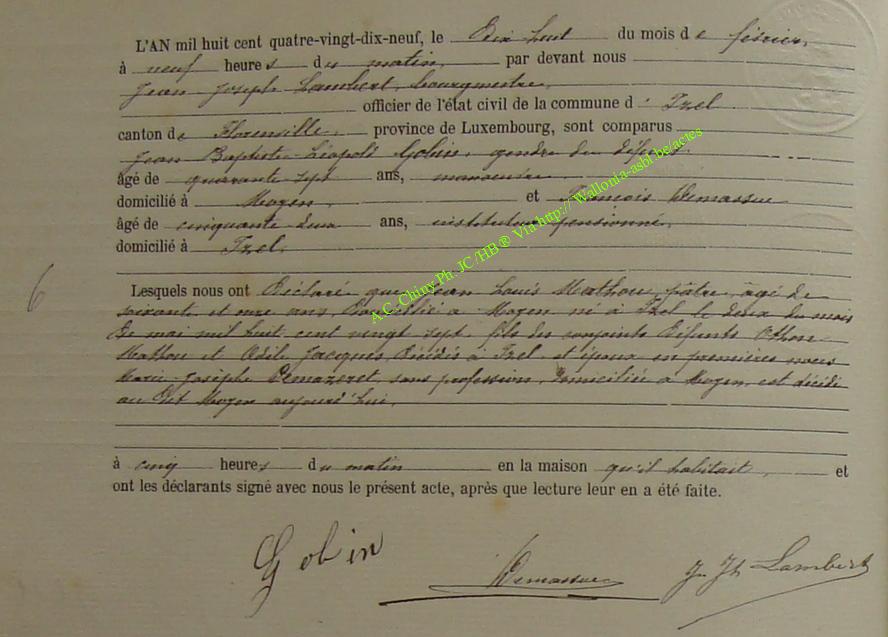 L'AN mil huit cent quatre-vingt-dix-neuf, le Dix huit du mois de février,
à neuf heures du matin, par devant nous
Jean Joseph Lambert, bourgmestre,
officier de l'état civil de la commune d' Izel
canton de Florenville, province de Luxembourg, sont comparus
Jean Baptiste Léopold Gobin, gendre du défunt
âgé de quarante sept ans, manoeuvre
domicilié à Moyen, et François Demassue
âgé de cinquante deux ans, instituteur pensionné,
domicilié à Izel,
6
Lesquels nous ont Déclaré que Jean Louis Mathou, pâtre, âgé de
soixante et onze ans, Domicilié à Moyen né à Izel le deux du mois
De mai mil huit cent vingt sept, fils des conjoints Défunts Othon
Mathou et Odile Jacques, Décédés à Izel et époux en premières noces
Marie Josèphe Demazeret, sans profession, Domiciliée à Moyen, est décédé
au Dit Moyen aujourd'hui,
à cinq heures du matin en la maison qu'il habitait, et
ont les déclarants signé avec nous le présent acte, après que lecture leur en a été faite.
Gobin
Demassue
J. Jh Lambert
A.C. Chiny Ph. JC/HB® Via http:// Wallonia-asbl.be/actes